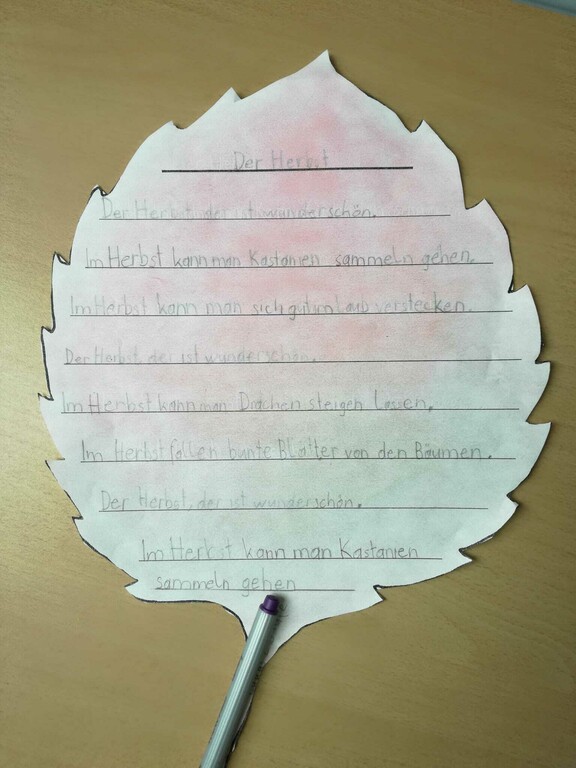 Der Herbst
Der Herbst, der ist wunderschön.
Im Herbst kann man Kastanien sammeln gehen.
Im Herbst kann man sich gut im Laub verstecken.
Der Herbst, der ist wunderschön.
Im Herbst kann man Drachen steigen lassen.
Im Herbst fallen bunte Blätter von den Bäumen.
Der Herbst, der ist wunderschön.
Im Herbst kann man Kastanien
sammeln gehen